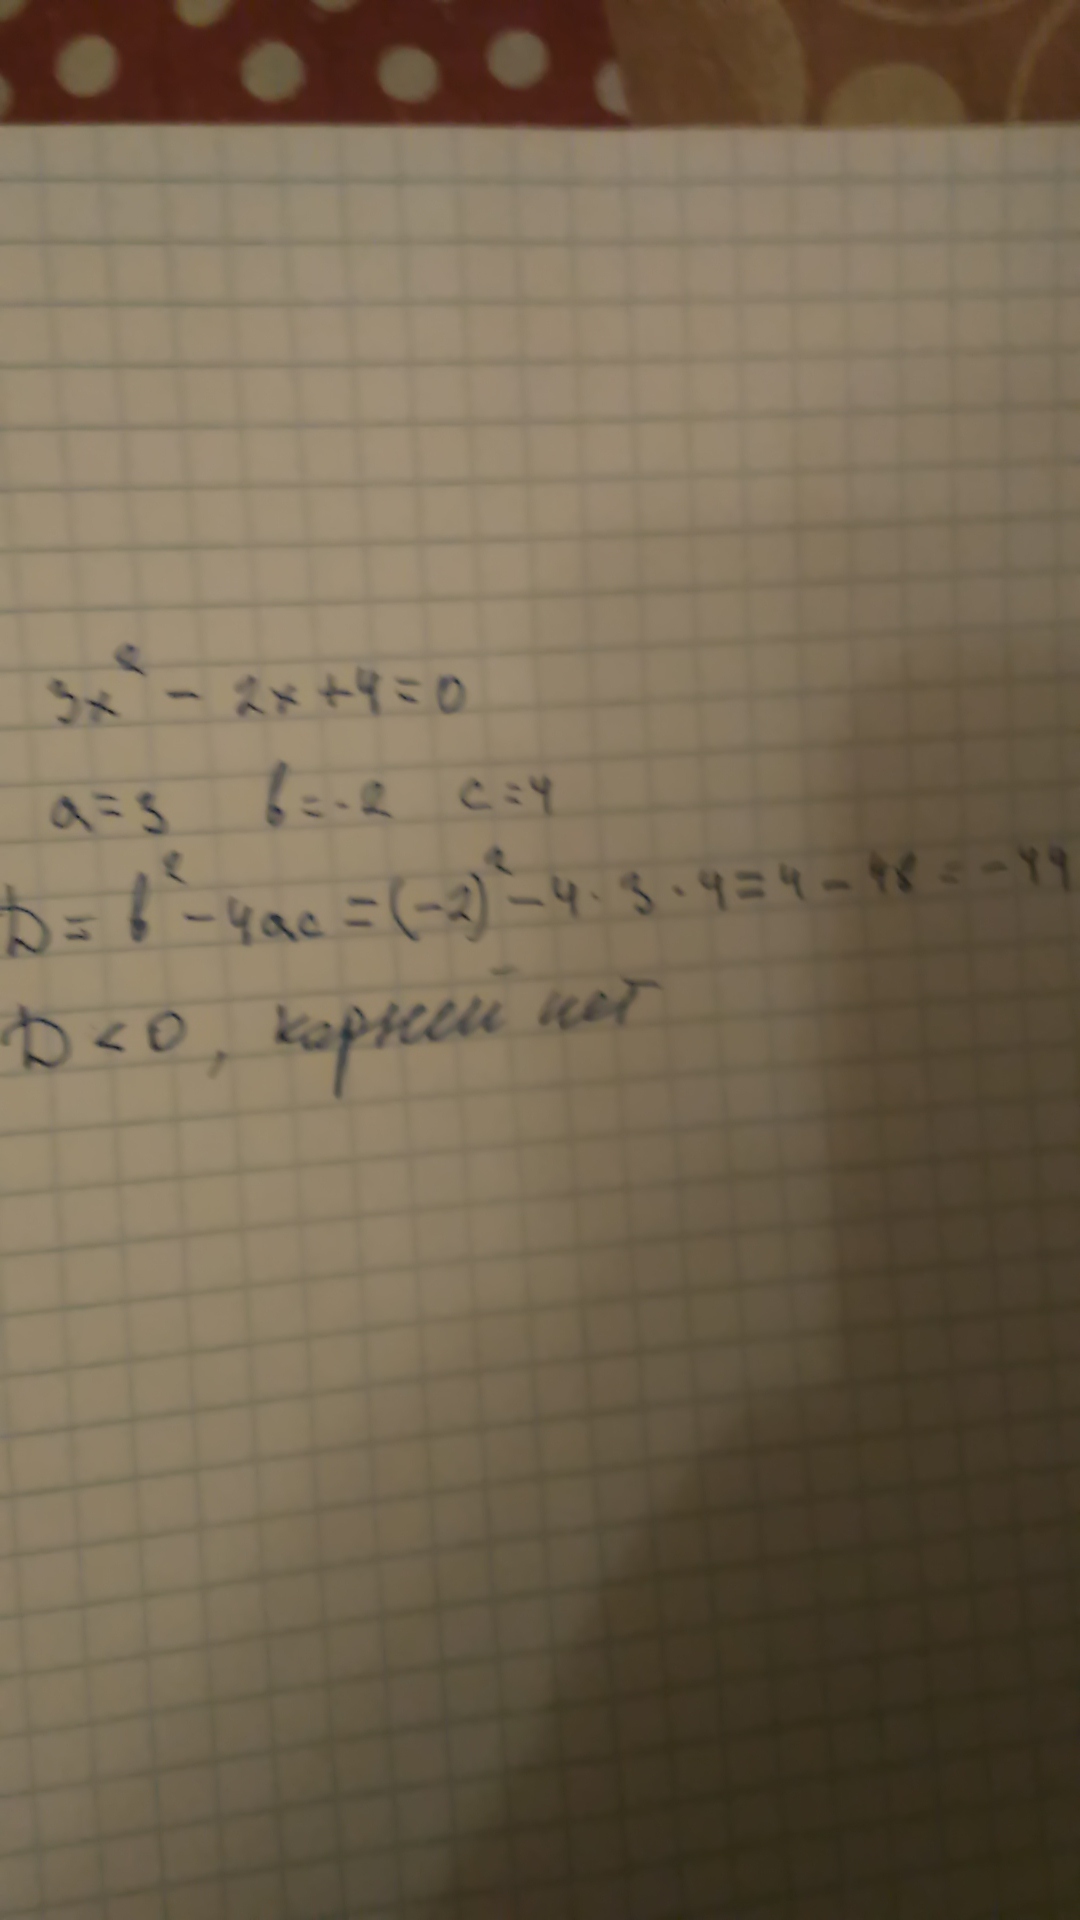 3x² - 2x + 4 = 0
a = 3 b = -2 c = 4
D = b² - 4ac = (-2)² - 4 · 3 · 4 = 4 - 48 = -44
D < 0, корней нет